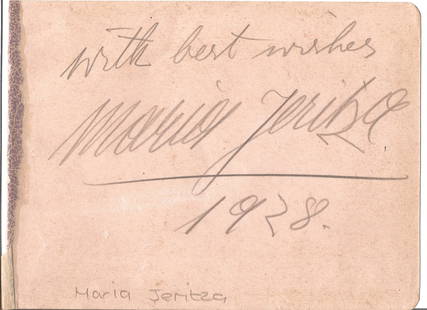 with best wishes
Maria Jeritza
1928.
Maria Jeritza